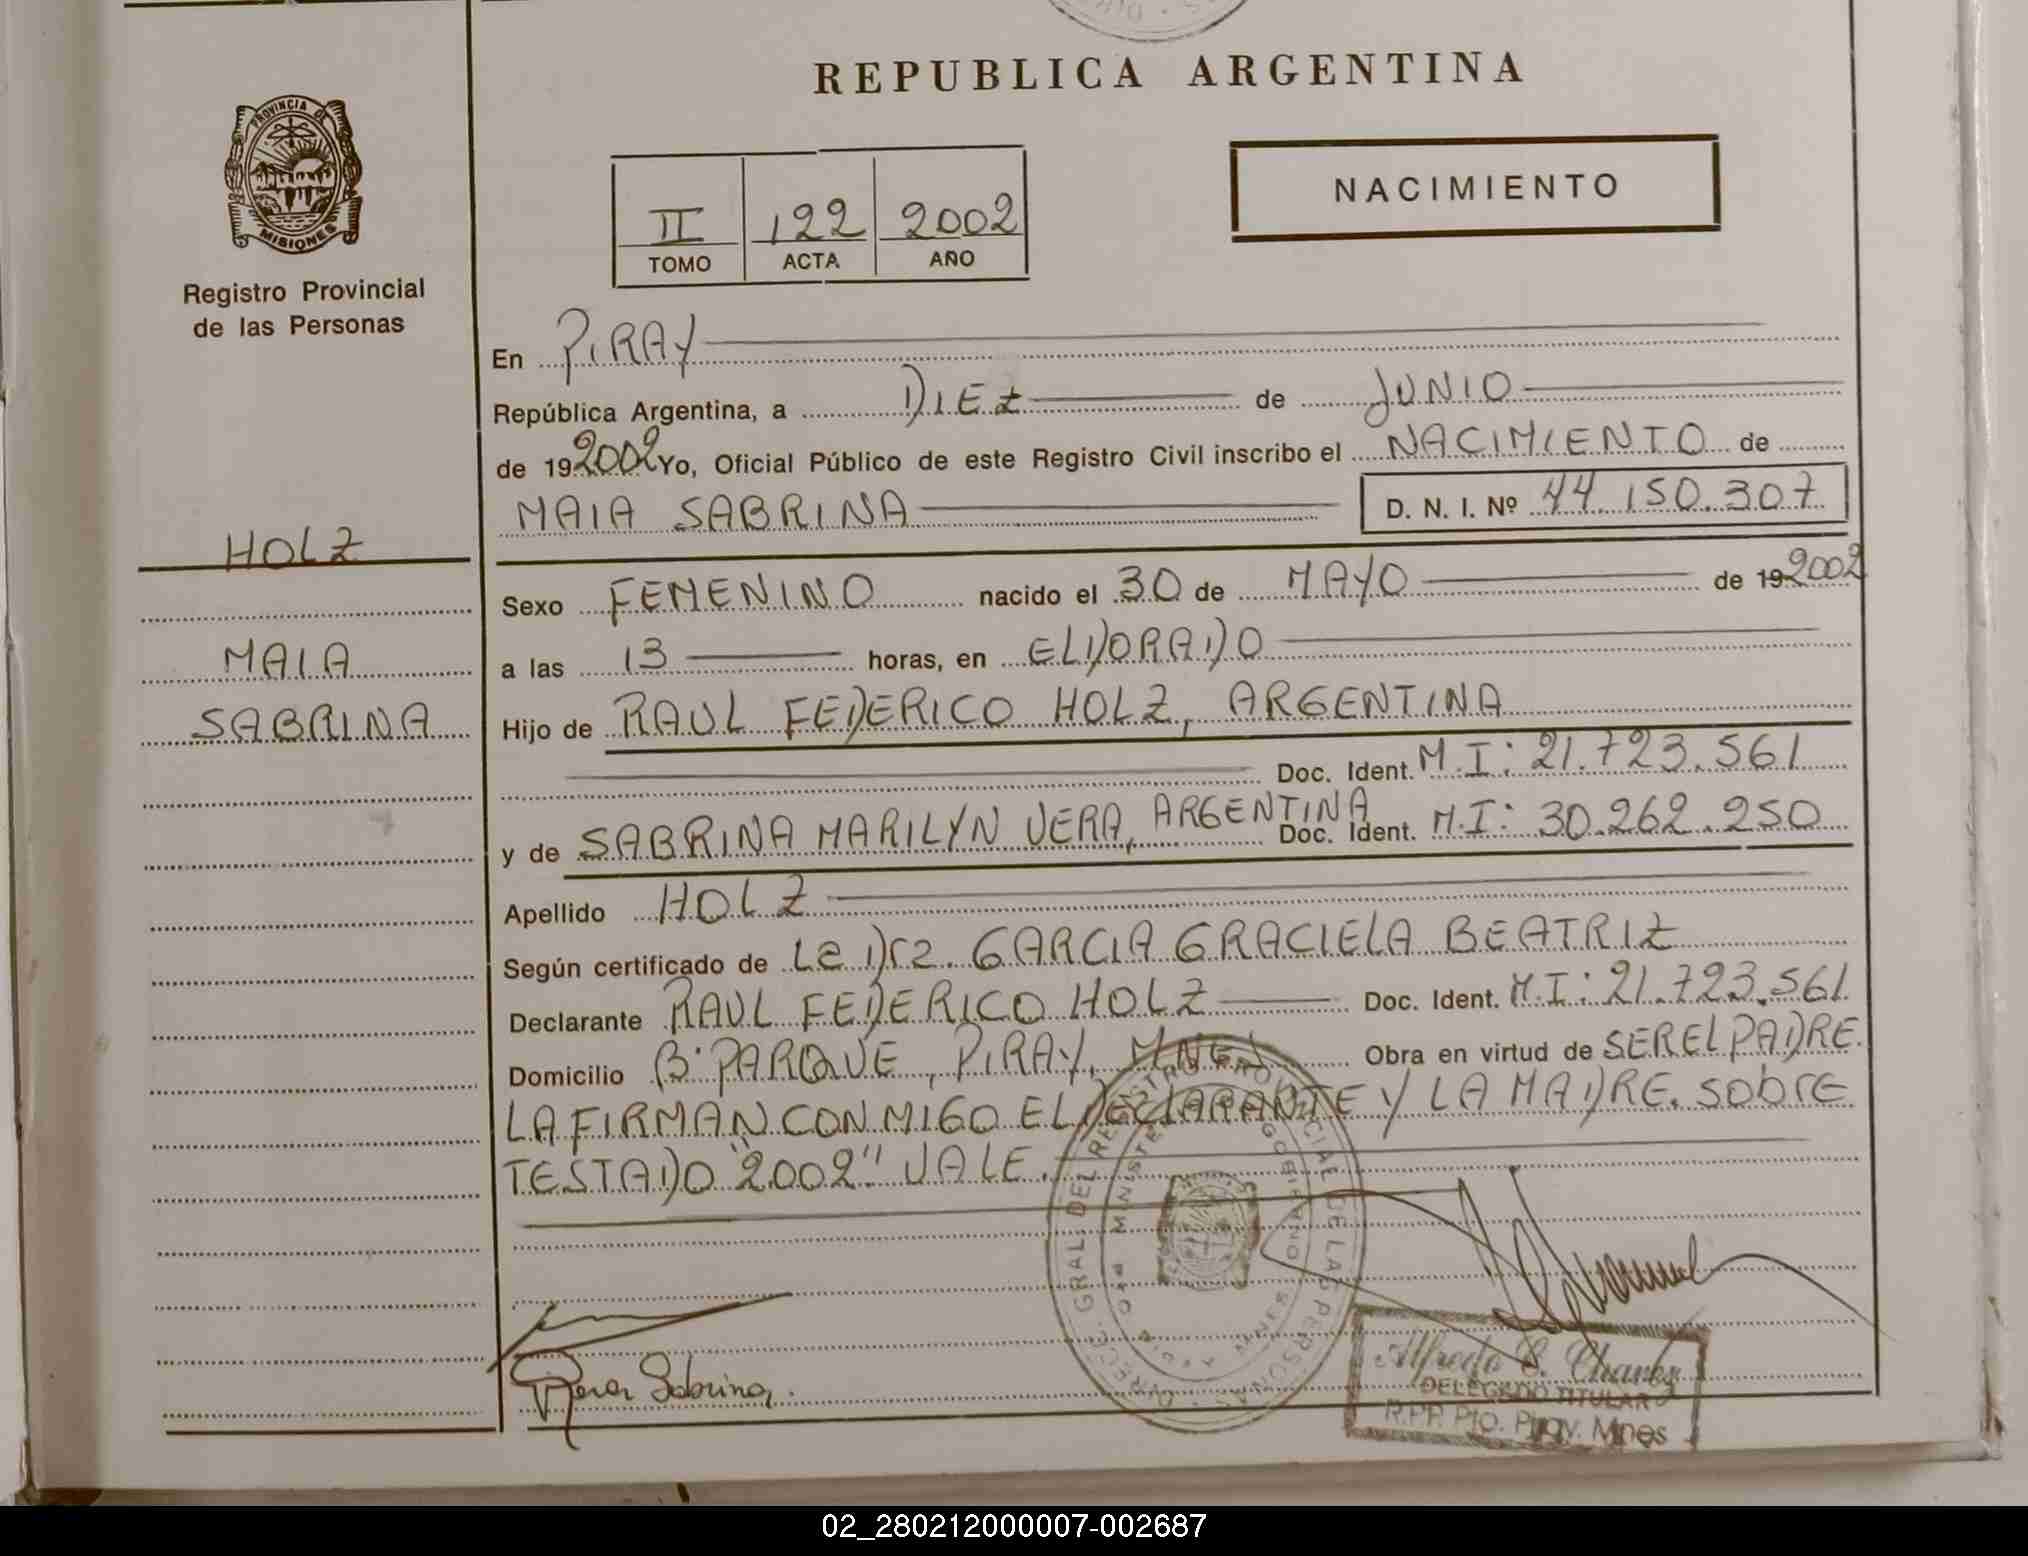 REPUBLICA ARGENTINA
PROVINCIA DE
MISIONES
Registro Provincial
de las Personas
NACIMIENTO
II 122 2002
TOMO ACTA AÑO
En PIRAY
República Argentina, a DIEZ de JUNIO
de 192002 Yo, Oficial Público de este Registro Civil inscribo el NACIMIENTO de
MAIA SABRINA D. N. I. Nº 44.150.307
HOLZ
MAIA
SABRINA
Sexo FEMENINO nacido el 30 de MAYO de 192002
a las 13 horas, en ELDORADO
Hijo de RAUL FEDERICO HOLZ, ARGENTINA
Doc. Ident. M.I: 21.723.561
y de SABRINA MARILYN VERA, ARGENTINA Doc. Ident. M.I: 30.262.250
Apellido HOLZ
Según certificado de La Dra. GARCIA GRACIELA BEATRIZ
Declarante RAUL FEDERICO HOLZ Doc. Ident. M.I: 21.723.561
Domicilio Bº PARQUE, PIRAY, MNES Obra en virtud de SER EL PADRE.
LA FIRMAN CONMIGO EL DECLARANTE Y LA MADRE. SObrE
TESTADO "2002" VALE.
DIRECC. GRAL. DEL REGISTRO PROVINCIAL DE LAS PERSONAS
MINISTE GOBIERNO
Vera Sabrina.
Alfredo C. Chavez
DELEGADO TITULAR
R.P.P. Pto. Piray. Mnes
02_280212000007-002687